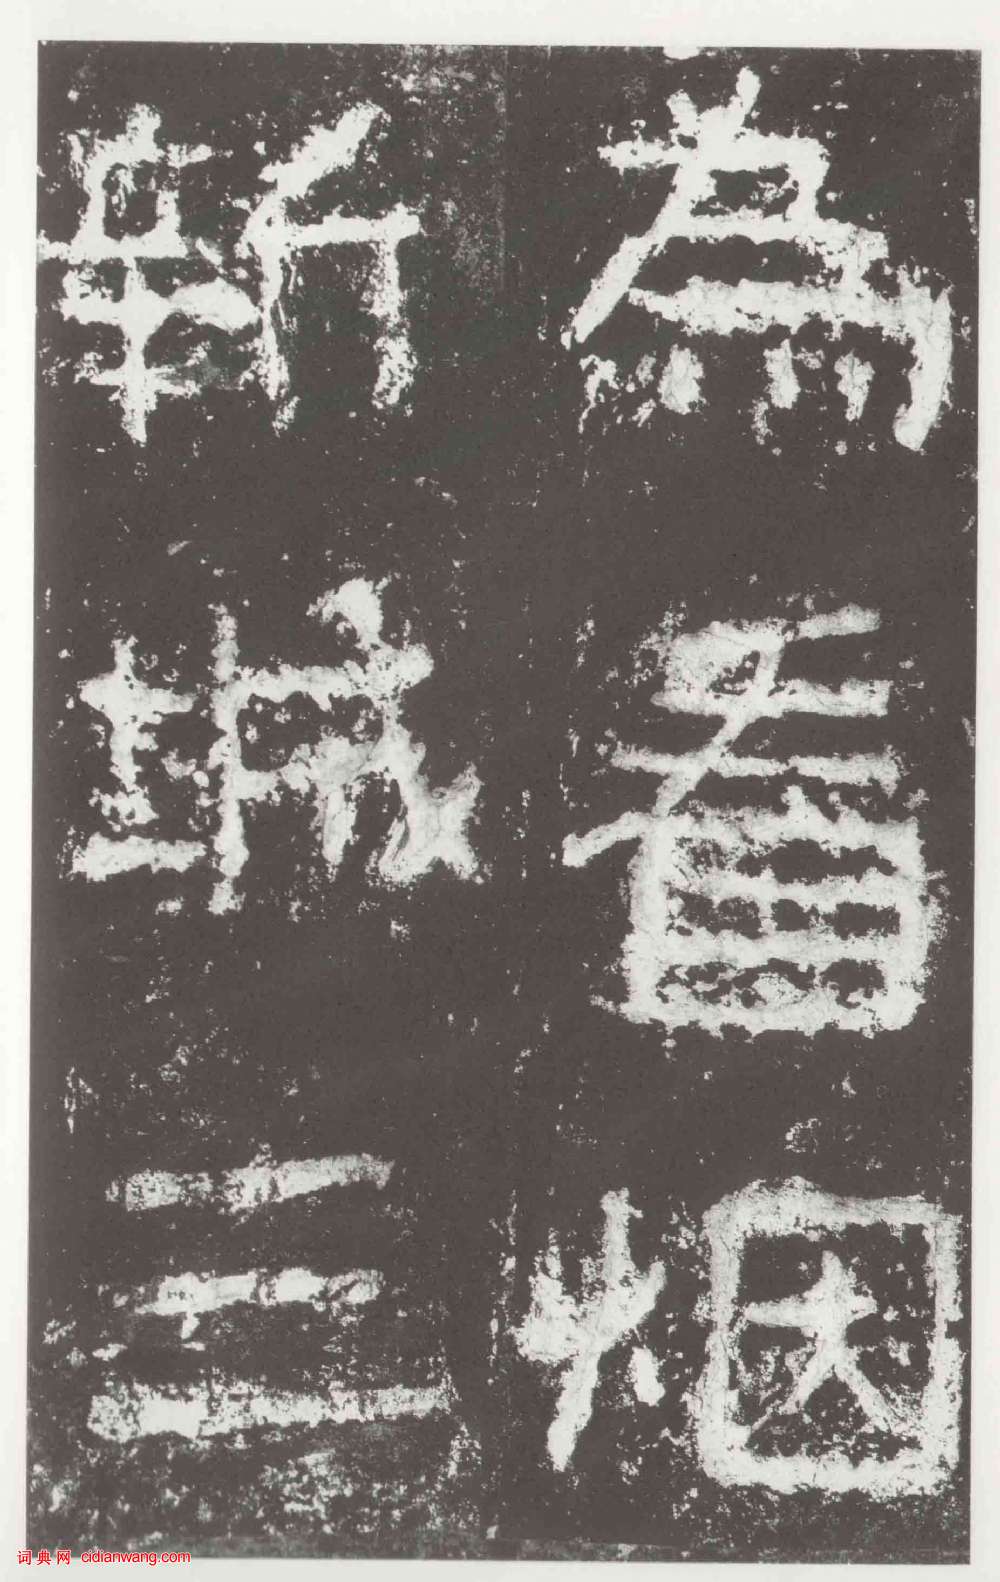 為看烟
斬城三
词典网 cidianwang.com